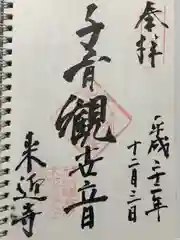 奉拝
平成二十二年
十二月三日
子育觀世音
来迎寺